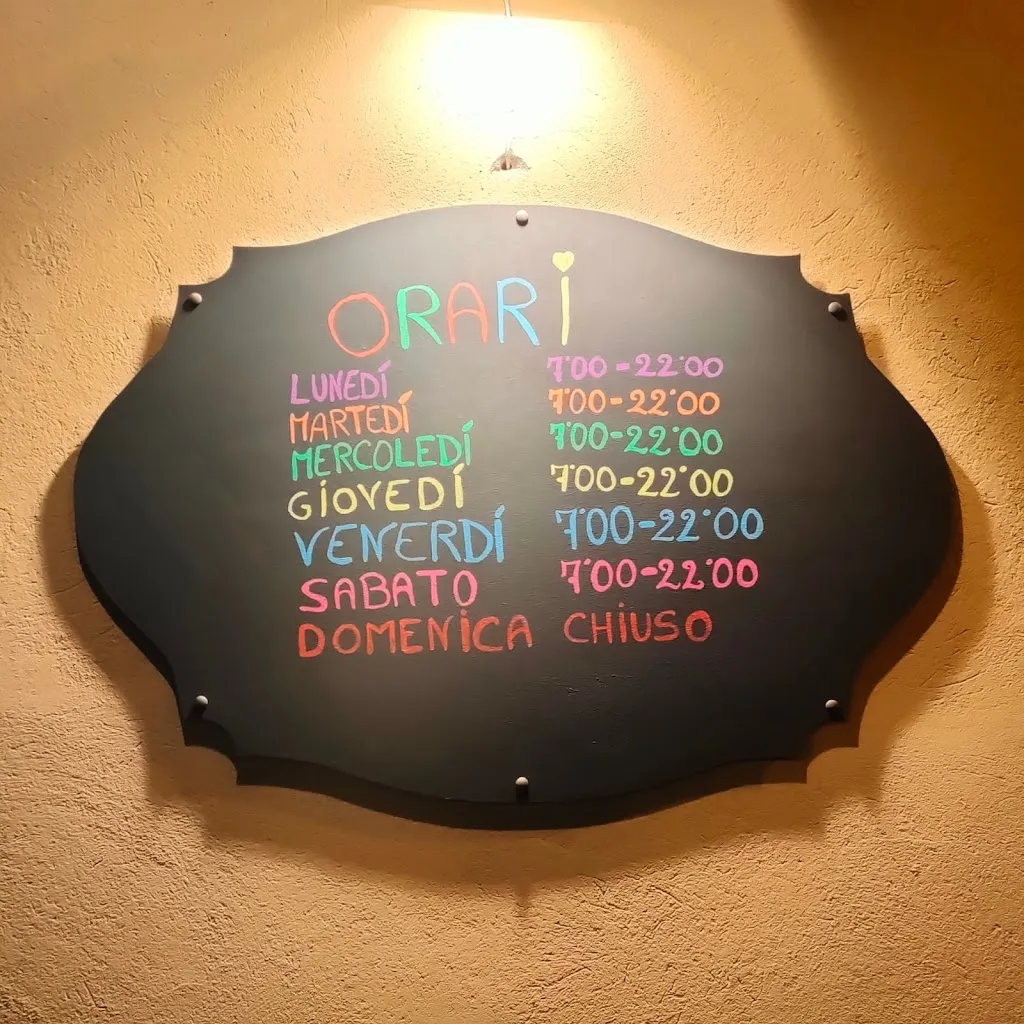 ORARI
LUNEDÍ 7:00-22:00
MARTEDÍ 7:00-22:00
MERCOLEDÍ 7:00-22:00
GIOVEDÍ 7:00-22:00
VENERDÍ 7:00-22:00
SABATO 7:00-22:00
DOMENICA CHIUSO